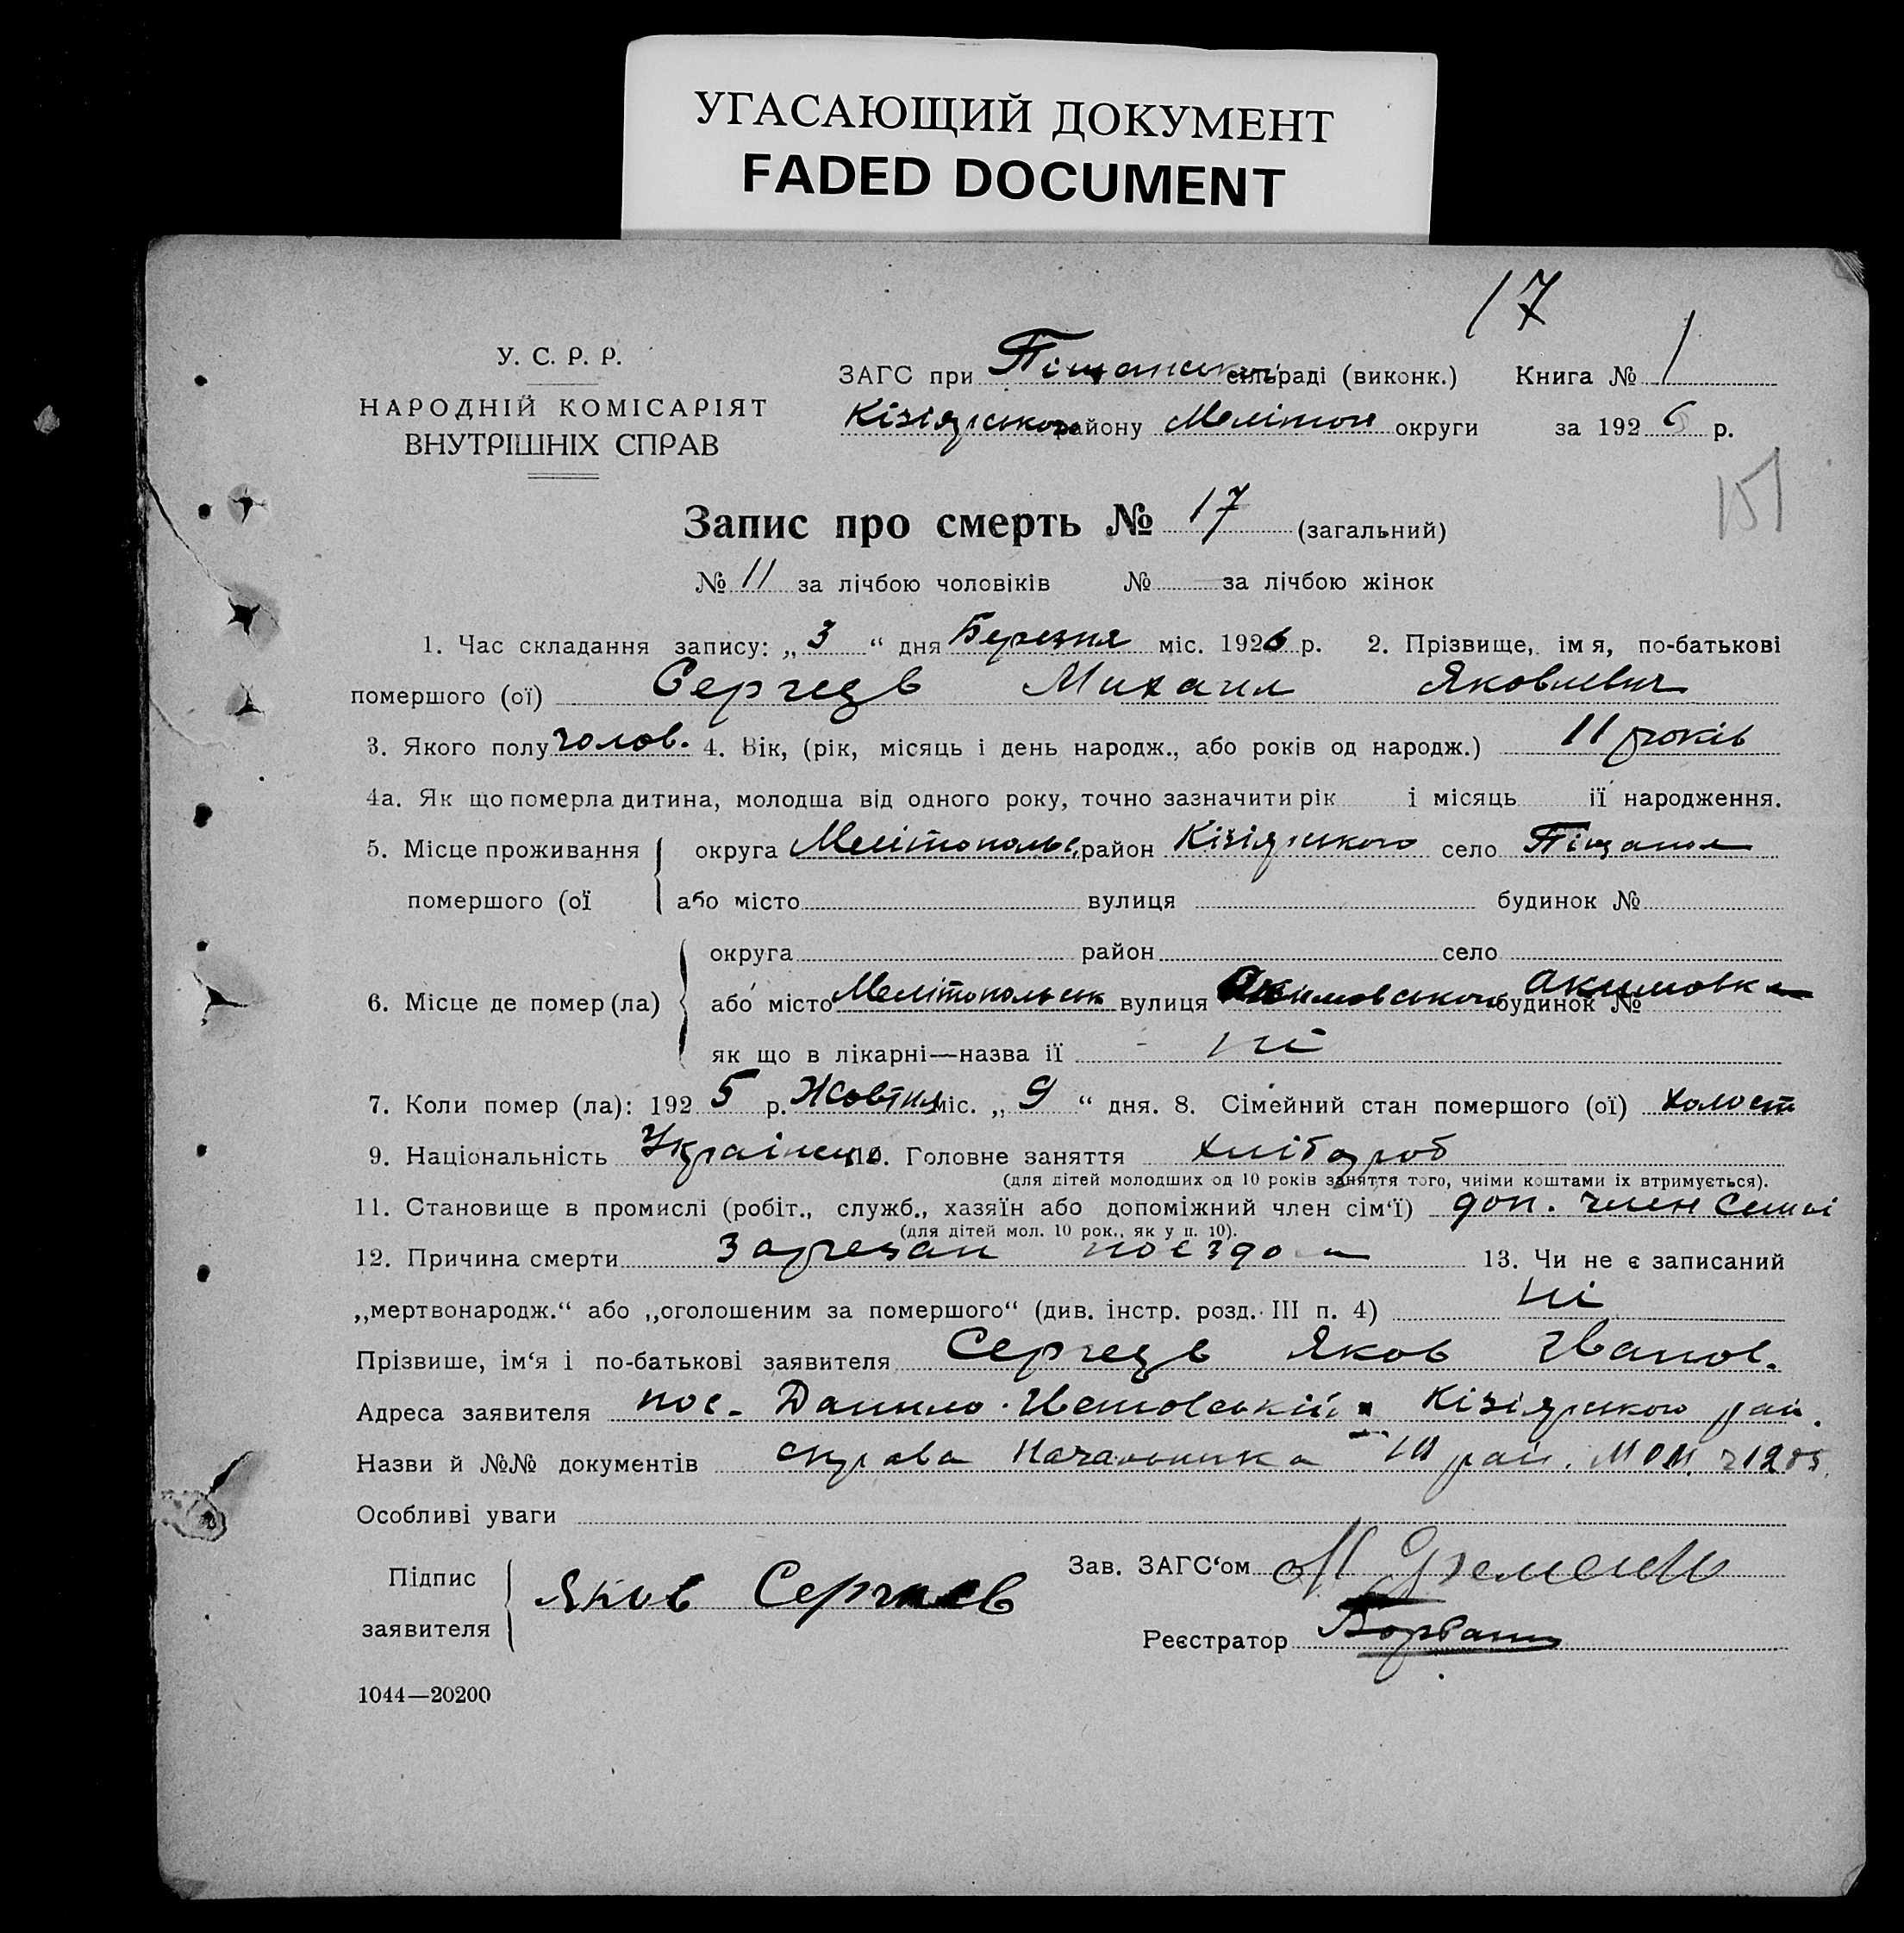 УГАСАЮЩИЙ ДОКУМЕНТ
FADED DOCUMENT
17
У. С. Р. Р.
НАРОДНІЙ КОМІСАРІЯТ
ВНУТРІШНІХ СПРАВ
ЗАГС при Піщанськ. сільраді (виконк.) Книга № 1
Кізіярського району Мелітоп округи за 1926 р.
151
Запис про смерть № 17 (загальний)
№ 11 за лічбою чоловіків № — за лічбою жінок
1. Час складання запису: „3“ дня Березня міс. 1926 р. 2. Прізвище, імя, по-батькові
помершого (ої) Сергеєв Михаил Яковлевич
3. Якого полу чолов. 4. Вік, (рік, місяць і день народж., або років од народж.) 11 років
4а. Як що померла дитина, молодша від одного року, точно зазначити рік і місяць її народження.
5. Місце проживання округа Мелітопольс. район Кізіярського село Піщаноя
помершого (ої або місто вулиця будинок №
округа район село
6. Місце де помер (ла) або місто Мелітопольськ вулиця Акимовського будинок № Акимовка
як що в лікарні—назва її ні
7. Коли помер (ла): 1925 р. Жовтня міс. „9“ дня. 8. Сімейний стан помершого (ої) холост
9. Національність Українець 10. Головне заняття хлібороб
(для дітей молодших од 10 років заняття того, чиїми коштами їх втримується).
11. Становище в промислі (робіт., служб., хазяїн або допоміжний член сім'ї) доп. член семьі
(для дітей мол. 10 рок., як у п. 10).
12. Причина смерти Зарезан поєздом 13. Чи не є записаний
„мертвонародж.“ або „оголошеним за помершого“ (див. інстр. розд. III п. 4) ні
Прізвише, ім'я і по-батькові заявителя Сергеєв Яков Іванов.
Адреса заявителя пос. Данило-Ивановській Кізіярського рай.
Назви й №№ документів справа Начальника III рай.
Особливі уваги
Підпис
заявителя Яков Сергеев
Зав. ЗАГС'ом
Реєстратор
1044—20200